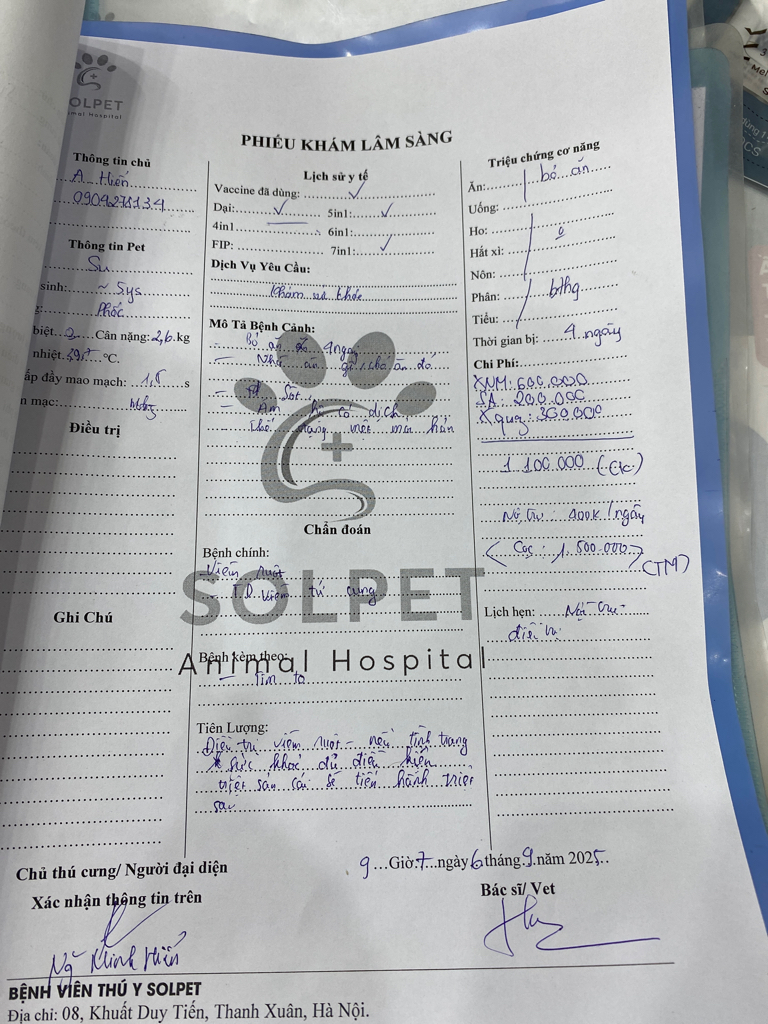 SOLPET
Animal Hospital
PHIẾU KHÁM LÂM SÀNG
Thông tin chủ
A Hiến
0909278134
Thông tin Pet
Su
sinh: ~ 5ys
Phốc
biệt Cân nặng: 2,6 kg
nhiệt °C.
ấp đầy mao mạch: 1,5 s
n mạc: hhg
Điều trị
Ghi Chú
Lịch sử y tế
Vaccine đã dùng: ✓
Dại: ✓ 5in1: ✓
4in1 6in1:
FIP: 7in1: ✓
Dịch Vụ Yêu Cầu:
Khám sức khỏe
Mô Tả Bệnh Cảnh:
- Bỏ ăn 4 ngày
- ăn gì bỏ ăn đó
- sốt
- Âm hộ có dịch
Thể trạng mệt mỏi
Chẩn đoán
Bệnh chính:
Viêm ruột
T.D viêm tử cung
SOLPET
Animal Hospital
Bệnh kèm theo:
- Tim to
Tiên Lượng:
Điều trị viêm ruột - nếu tình trạng
sức khoẻ đủ điều kiện
triệt sản sẽ tiến hành triệt
sau
Triệu chứng cơ năng
Ăn: bỏ ăn
Uống:
Ho: 0
Hắt xì:
Nôn:
Phân: bthg
Tiểu:
Thời gian bị: 4 ngày
Chi Phí:
XNM: 600.000
SA: 200.000
Xquq: 300.000
1.100.000 (CK)
Nội trú: 400K/ngày
< Cọc: 1.500.000 >
(TM)
Lịch hẹn: Nội trú
điều trị
9 Giờ: 7 ngày 6 tháng 9 năm 2025
Chủ thú cưng/ Người đại diện
Xác nhận thông tin trên
Bác sĩ/ Vet
Ng Minh Hiến
BỆNH VIỆN THÚ Y SOLPET
Địa chỉ: 08, Khuất Duy Tiến, Thanh Xuân, Hà Nội.